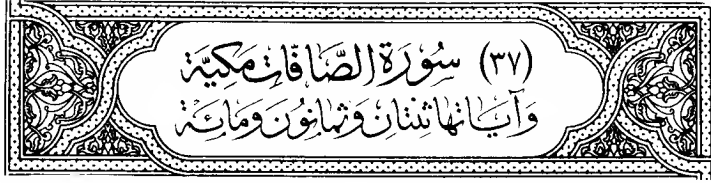 (٣٧) سُورَة الصَّافَّاتِ مَكِيَّة
وَآيَاتهَا ثِنْتَانِ وَثَمَانُونَ وَمَائَة